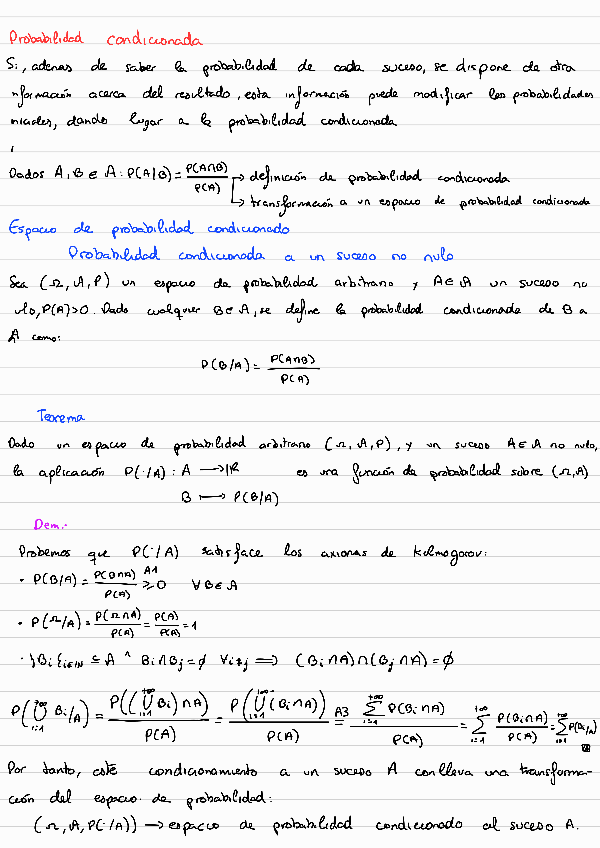 Probabilidad condicionada
Si, ademas de saber la probabilidad de cada suceso, se dispone de otra
información acerca del resultado, esta información puede modificar las probabilidades
iniciales, dando lugar a la probabilidad condicionada
Dados A, B ∈ A : P(A|B) = P(A∩B)/P(A) → definición de probabilidad condicionada
→ transformación a un espacio de probabilidad condicionada
Espacio de probabilidad condicionado
Probabilidad condicionada a un suceso no nulo
Sea (Ω, A, P) un espacio de probabilidad arbitrario y A ∈ A un suceso no
nulo, P(A)>0. Dado cualquier B ∈ A, se define la probabilidad condicionada de B a
A como:
P(B/A) = P(A∩B)/P(A)
Teorema
Dado un espacio de probabilidad arbitrario (Ω, A, P), y un suceso A ∈ A no nulo,
la aplicación P(·/A) : A → ℝ es una función de probabilidad sobre (Ω, A)
B ↦ P(B/A)
Dem.-
Probemos que P(·/A) satisface los axiomas de Kolmogorov:
· P(B/A) = P(B∩A)/P(A) ≥ 0 A1 ∀B ∈ A
· P(Ω/A) = P(Ω∩A)/P(A) = P(A)/P(A) = 1
· {Bi}i∈ℕ ⊆ A ^ Bi∩Bj = ∅ ∀i≠j ⟹ (Bi∩A)∩(Bj∩A) = ∅
P(⋃_{i=1}^{+∞} Bi/A) = P((⋃_{i=1}^{+∞} Bi)∩A)/P(A) = P(⋃_{i=1}^{+∞}(Bi∩A))/P(A) =A3 ∑_{i=1}^{+∞} P(Bi∩A)/P(A) = ∑_{i=1}^{+∞} P(Bi∩A)/P(A) = ∑_{i=1}^{+∞} P(Bi/A)
Por tanto, este condicionamiento a un suceso A conlleva una transforma-
ción del espacio de probabilidad:
(Ω, A, P(·/A)) → espacio de probabilidad condicionado al suceso A.